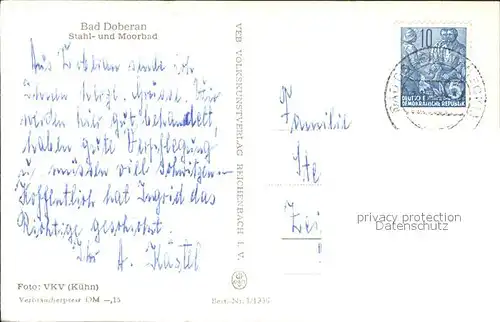 Bad Doberan
Stahl- und Moorbad
Aus Doberan sende ich
Ihnen herzl. Grüsse. Wir
werden hier gut behandelt,
haben gute Verpflegung
u. müssen viel schwitzen.
Hoffentlich hat Ingrid das
Richtige geschickt.
Ihr A. Hästel
Foto: VKV (Kühn)
Verbraucherpreis DM -,15
VEB VOLKSKUNSTVERLAG REICHENBACH I. V.
Best.-Nr.
10
DEUTSCHE
DEMOKRATISCHE REPUBLIK
Familie
Ste
privacy protection
Datenschutz